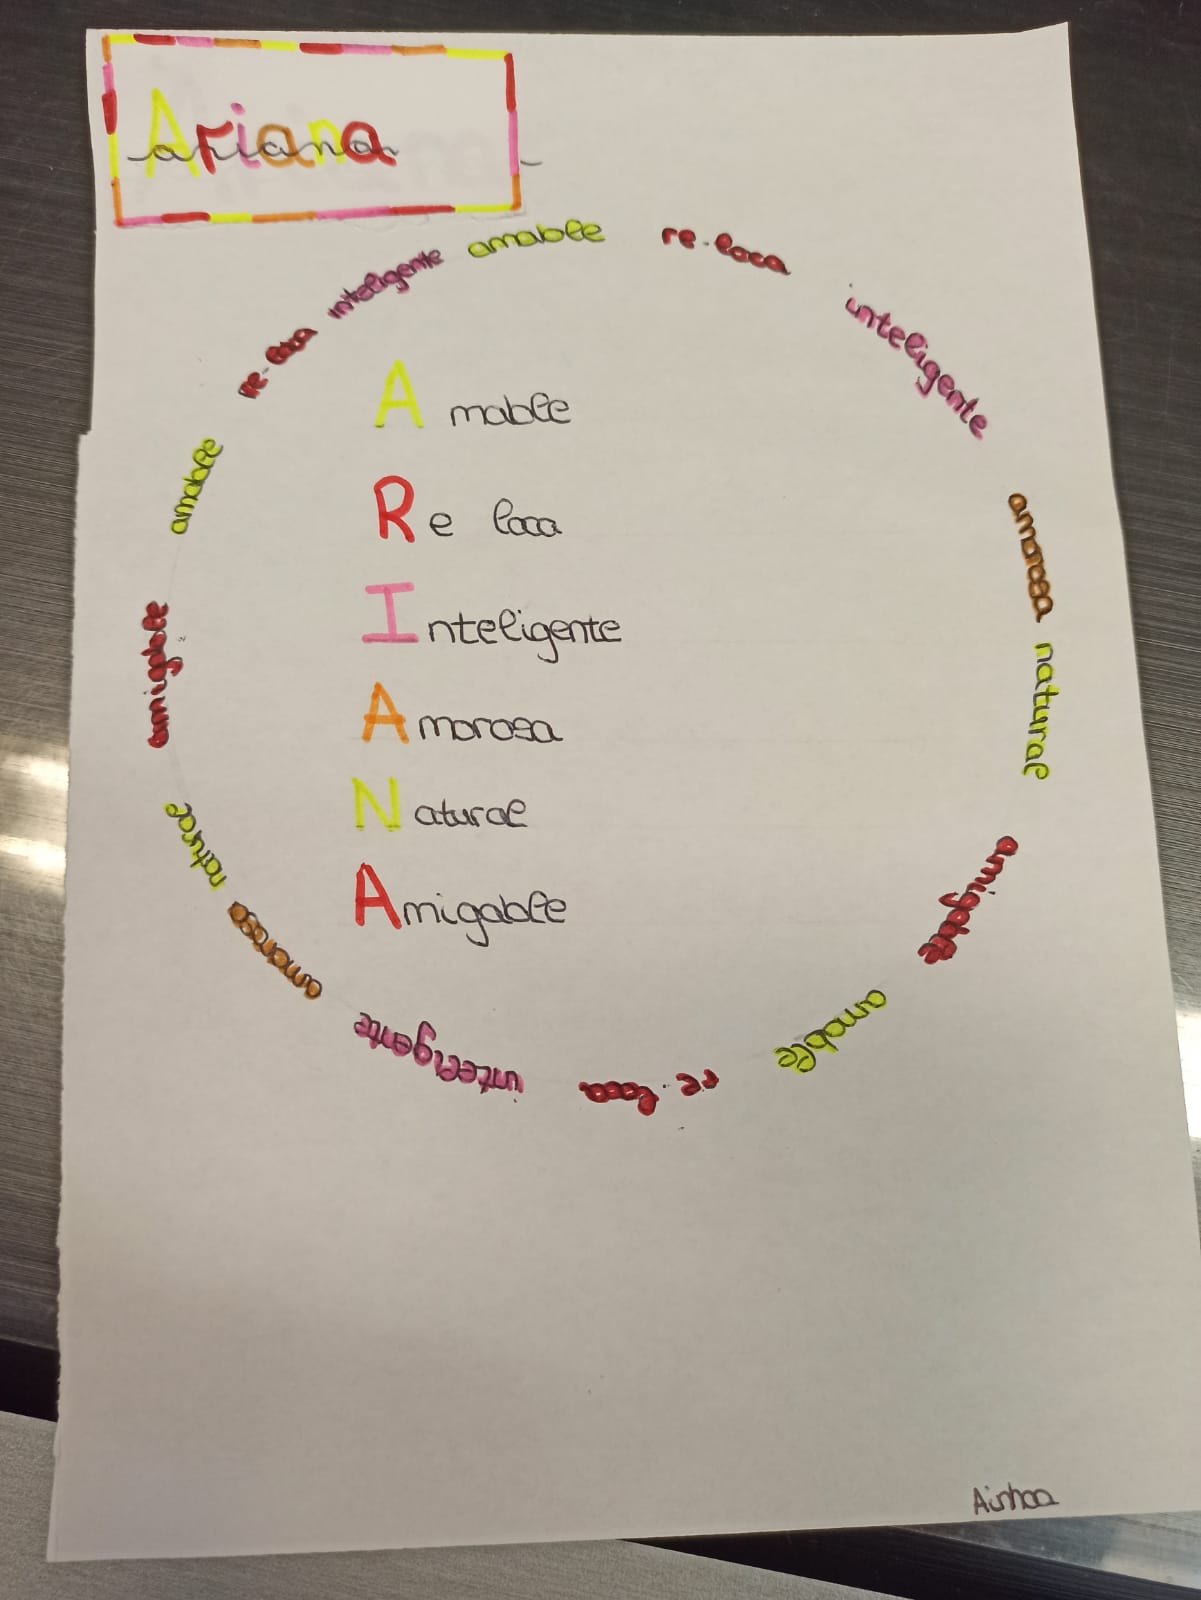 Ariana
ariana
amable
re-loca
inteligente
amorosa
natural
amigable
amable
re-loca
inteligente
amorosa
natural
amigable
amable
re-loca
inteligente
Amable
Re loca
Inteligente
Amorosa
Natural
Amigable
Ainhoa